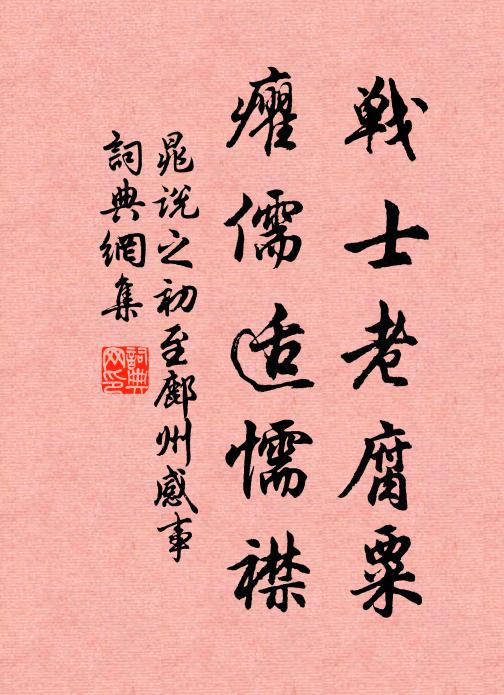 戦士老腐粟
癯儒适懦襟
晁説之初至鄜州感事
詞典網集
詞典网印